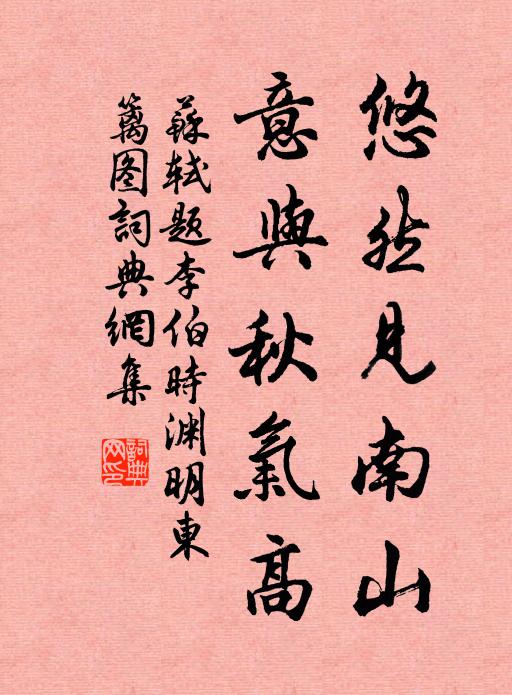 悠然見南山
意與秋氣高
蘇軾題李伯時淵明東
籬图詞典網集
詞典
网印